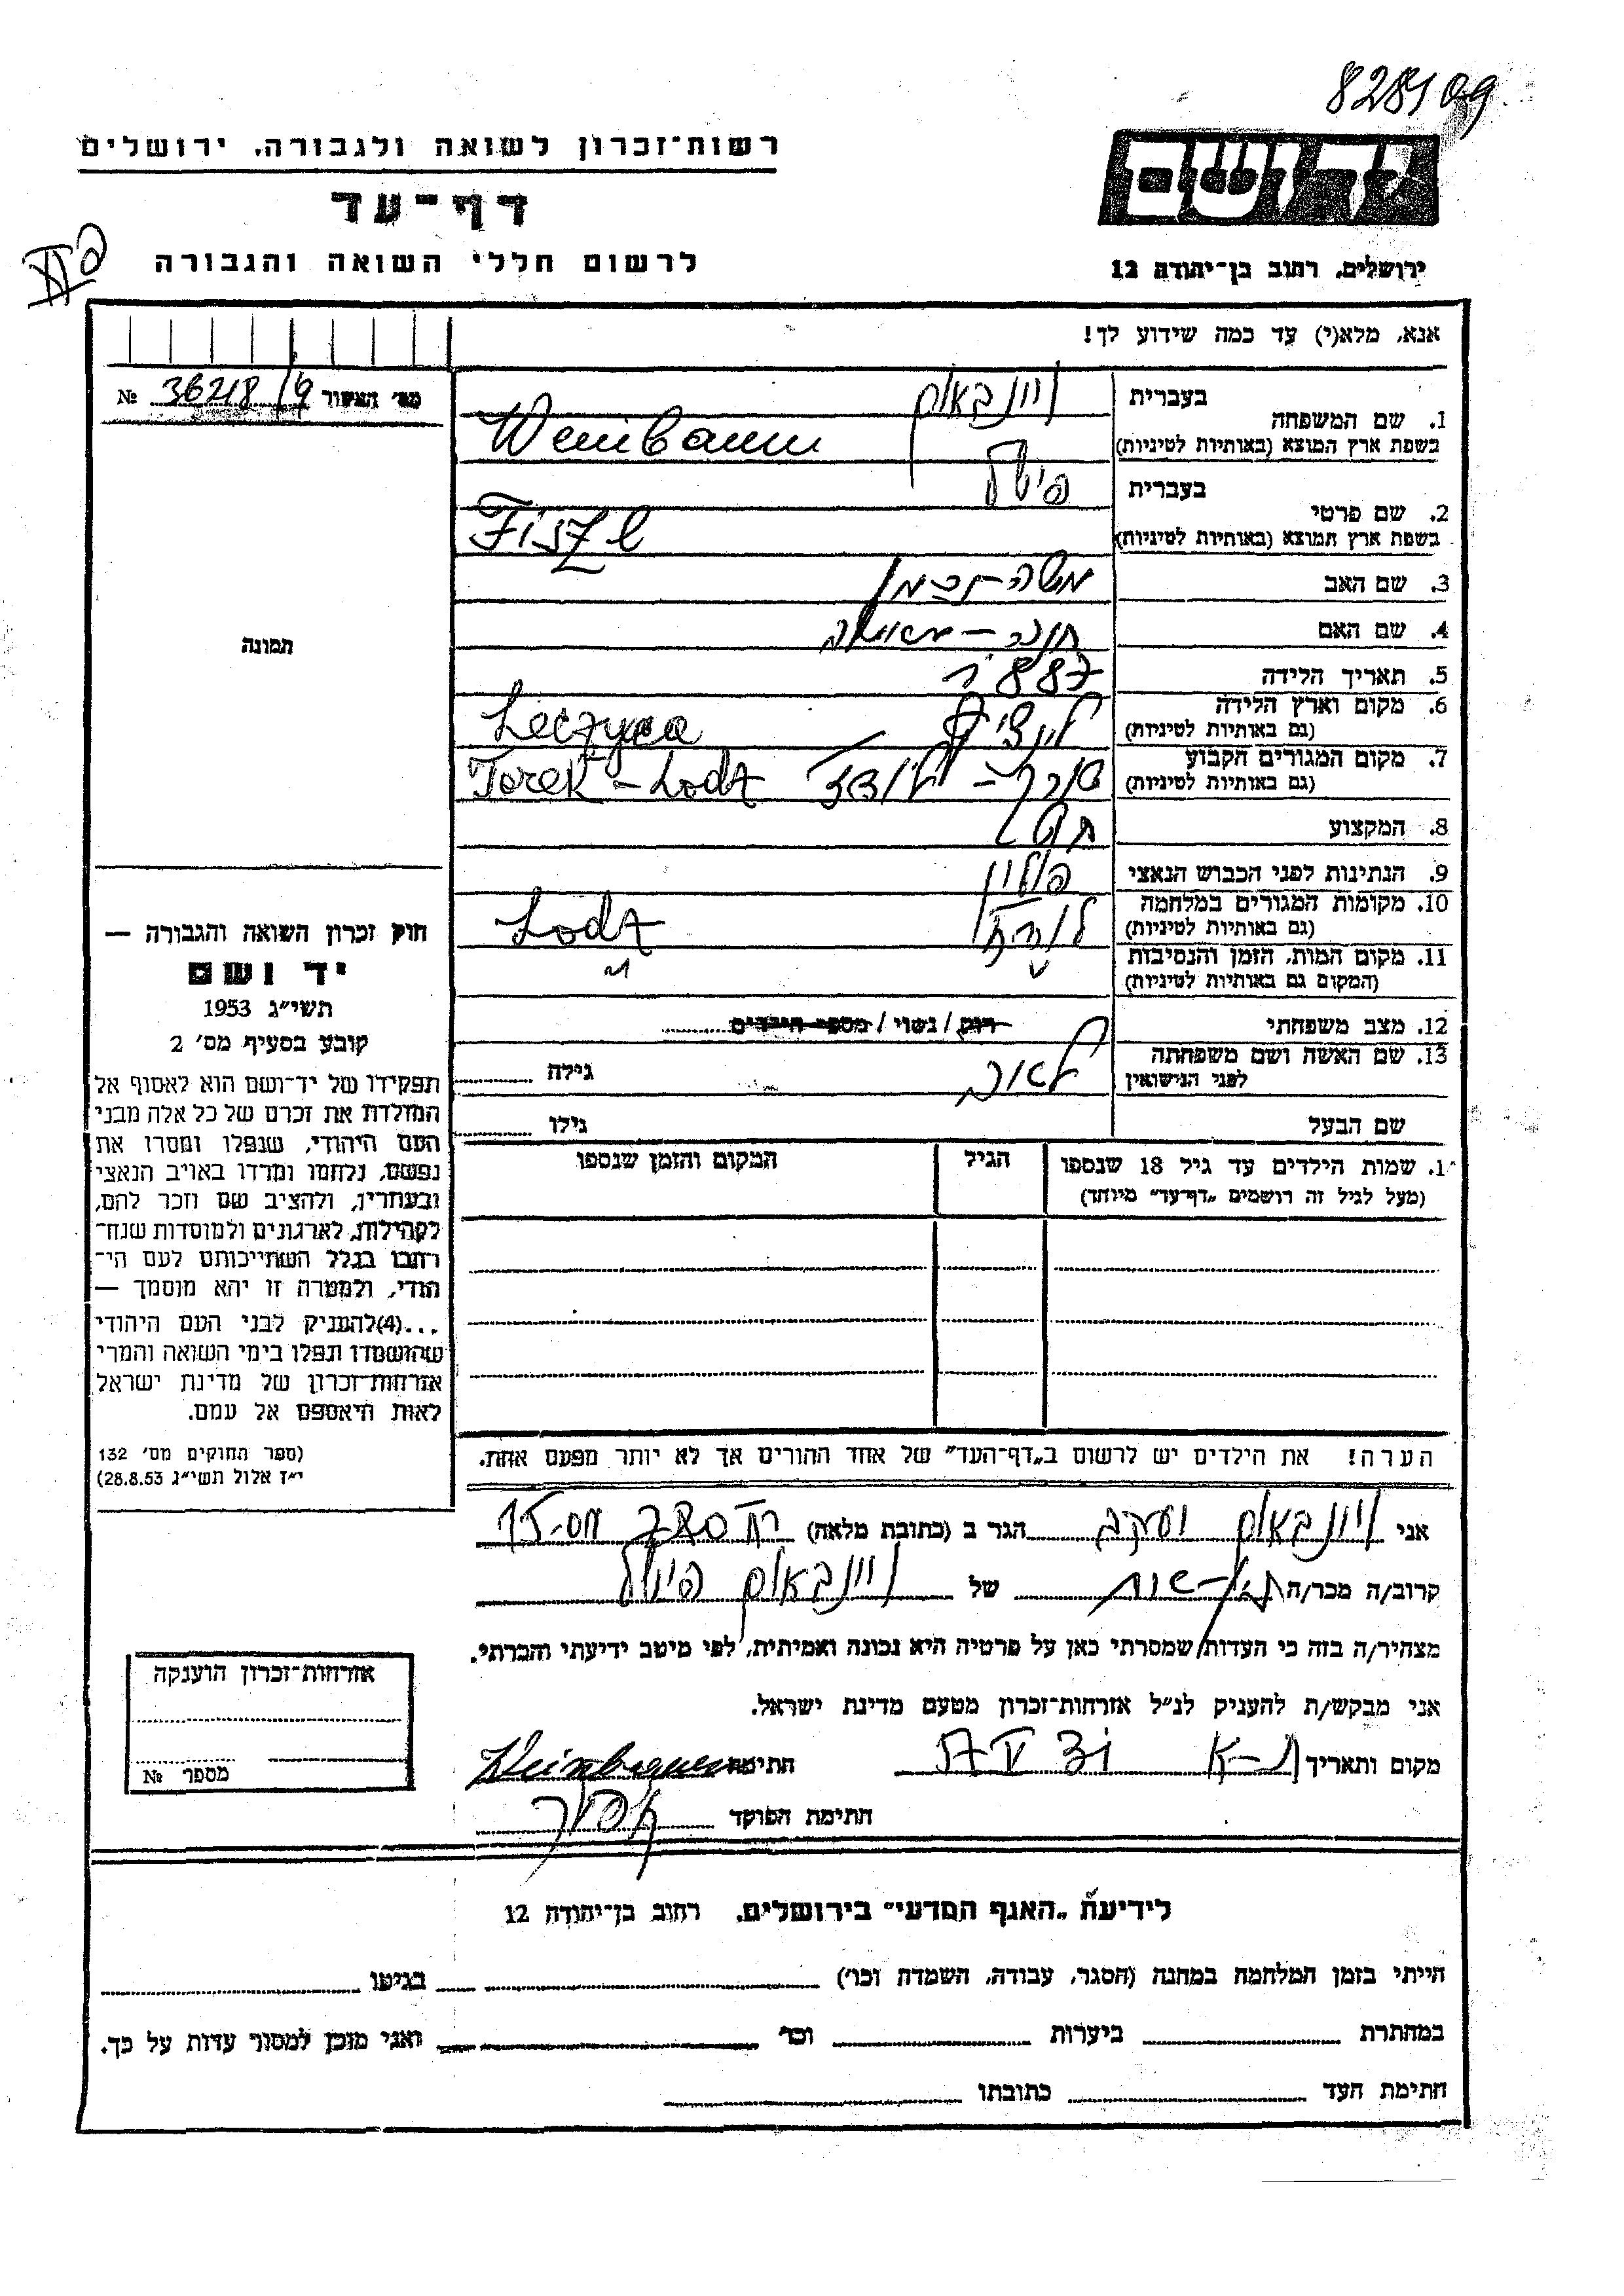 828109
רשות־זכרון לשואה ולגבורה, ירושלים
דף־עד
לרשום חללי השואה והגבורה
ידושם
ירושלים, רחוב בן־יהודה 12
אנא, מלא(י) עד כמה שידוע לך!
מס׳ האשור 36218/9 №
בעברית ויינבאום
1. שם המשפחה
בשפת ארץ המוצא (באותיות לטיניות) Weinbaum
בעברית פישל
2. שם פרטי
בשפת ארץ המוצא (באותיות לטיניות) Fiszel
3. שם האב משה-זלמן
4. שם האם חנה –
5. תאריך הלידה 1887
6. מקום וארץ הלידה
(גם באותיות לטיניות) Leczyca
7. מקום המגורים הקבוע
(גם באותיות לטיניות) טורק – לודז Torek – Lodz
8. המקצוע
9. הנתינות לפני הכבוש הנאצי פולין
10. מקומות המגורים במלחמה
(גם באותיות לטיניות) Lodz
11. מקום המות, הזמן והנסיבות
(המקום גם באותיות לטיניות) " "
12. מצב משפחתי רוק / נשוי / מספר הילדים
13. שם האשה ושם משפחתה
לפני הנישואין לאה גילה
שם הבעל גילו
1. שמות הילדים עד גיל 18 שנספו הגיל המקום והזמן שנספו
(מעל לגיל זה רושמים „דף־עד” מיוחד)
הערה! את הילדים יש לרשום ב„דף־העד” של אחד ההורים אך לא יותר מפעם אחת.
תמונה
חוק זכרון השואה והגבורה —
יד ושם
תשי״ג 1953
קובע בסעיף מס׳ 2
תפקידו של יד־ושם הוא לאסוף אל
המולדת את זכרם של כל אלה מבני
העם היהודי, שנפלו ומסרו את
נפשם, נלחמו ומרדו באויב הנאצי
ובעוזריו, ולהציב שם וזכר להם,
לקהילות, לארגונים ולמוסדות שנח־
רבו בגלל השתייכותם לעם הי־
הודי, ולמטרה זו יהא מוסמך —
...(4)להעניק לבני העם היהודי
שהושמדו ונפלו בימי השואה והמרי
אזרחות־זכרון של מדינת ישראל
לאות היאספם אל עמם.
(ספר החוקים מס׳ 132
י״ז אלול תשי״ג 28.8.53)
אני ויינבאום יעקב הגר ב (כתובת מלאה)
קרוב/ה מכר/ה של ויינבאום פישל
מצהיר/ה בזה כי העדות שמסרתי כאן על פרטיה היא נכונה ואמיתית, לפי מיטב ידיעתי והכרתי.
אני מבקש/ת להעניק לנ״ל אזרחות־זכרון מטעם מדינת ישראל.
מקום ותאריך ת-א חתימה Weinbaum
חתימת הפוקד
אזרחות־זכרון הוענקה
מספר №
לידיעת „האגף המדעי” בירושלים, רחוב בן־יהודה 12
הייתי בזמן המלחמה במחנה (הסגר, עבודה, השמדה וכו׳) בגיטו
במחתרת ביערות וכו׳ ואני מוכן למסור עדות על כך.
חתימת העד כתובתו